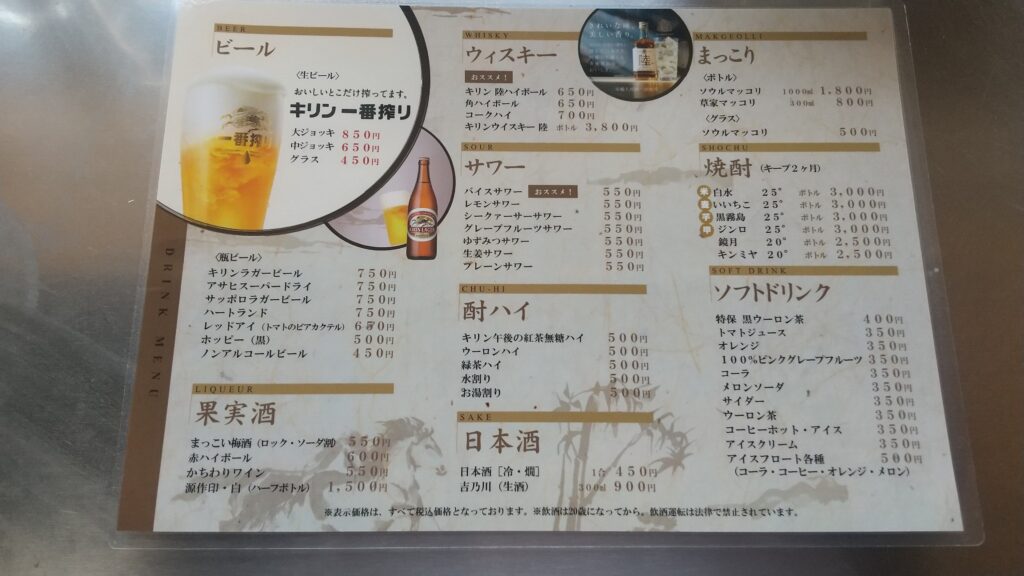 DRINK MENU
BEER
ビール
〈生ビール〉
おいしいとこだけ搾ってます。
キリン一番搾り
大ジョッキ 850円
中ジョッキ 650円
グラス 450円
一番搾り
〈瓶ビール〉
キリンラガービール 750円
アサヒスーパードライ 750円
サッポロラガービール 750円
ハートランド 750円
レッドアイ（トマトのビアカクテル） 650円
ホッピー（黒） 500円
ノンアルコールビール 450円
LIQUEUR
果実酒
まっこい梅酒（ロック・ソーダ割） 550円
赤ハイボール 600円
かちわりワイン 550円
源作印・白（ハーフボトル） 1,500円
WHISKY
ウィスキー
おススメ！
キリン 陸ハイボール 650円
角ハイボール 650円
コークハイ 700円
キリンウイスキー 陸 ボトル 3,800円
きれいな味、
美しい香り。
陸
SOUR
サワー
バイスサワー おススメ！ 550円
レモンサワー 550円
シークァーサーサワー 550円
グレープフルーツサワー 550円
ゆずみつサワー 550円
生姜サワー 550円
プレーンサワー 550円
CHU-HI
酎ハイ
キリン午後の紅茶無糖ハイ 500円
ウーロンハイ 500円
緑茶ハイ 500円
水割り 500円
お湯割り 500円
SAKE
日本酒
日本酒［冷・燗］ 1合 450円
吉乃川（生酒） 300ml 900円
MAKGEOLLI
まっこり
〈ボトル〉
ソウルマッコリ 1000ml 1,800円
草家マッコリ 300ml 800円
〈グラス〉
ソウルマッコリ 500円
SHOCHU
焼酎（キープ2ヶ月）
米 白水 25° ボトル 3,000円
麦 いいちこ 25° ボトル 3,000円
芋 黒霧島 25° ボトル 3,000円
甲 ジンロ 25° ボトル 3,000円
鏡月 20° ボトル 2,500円
キンミヤ 20° ボトル 2,500円
SOFT DRINK
ソフトドリンク
特保 黒ウーロン茶 400円
トマトジュース 350円
オレンジ 350円
100%ピンクグレープフルーツ 350円
コーラ 350円
メロンソーダ 350円
サイダー 350円
ウーロン茶 350円
コーヒーホット・アイス 350円
アイスクリーム 350円
アイスフロート各種 500円
（コーラ・コーヒー・オレンジ・メロン）
※表示価格は、すべて税込価格となっております。※飲酒は20歳になってから。飲酒運転は法律で禁止されています。